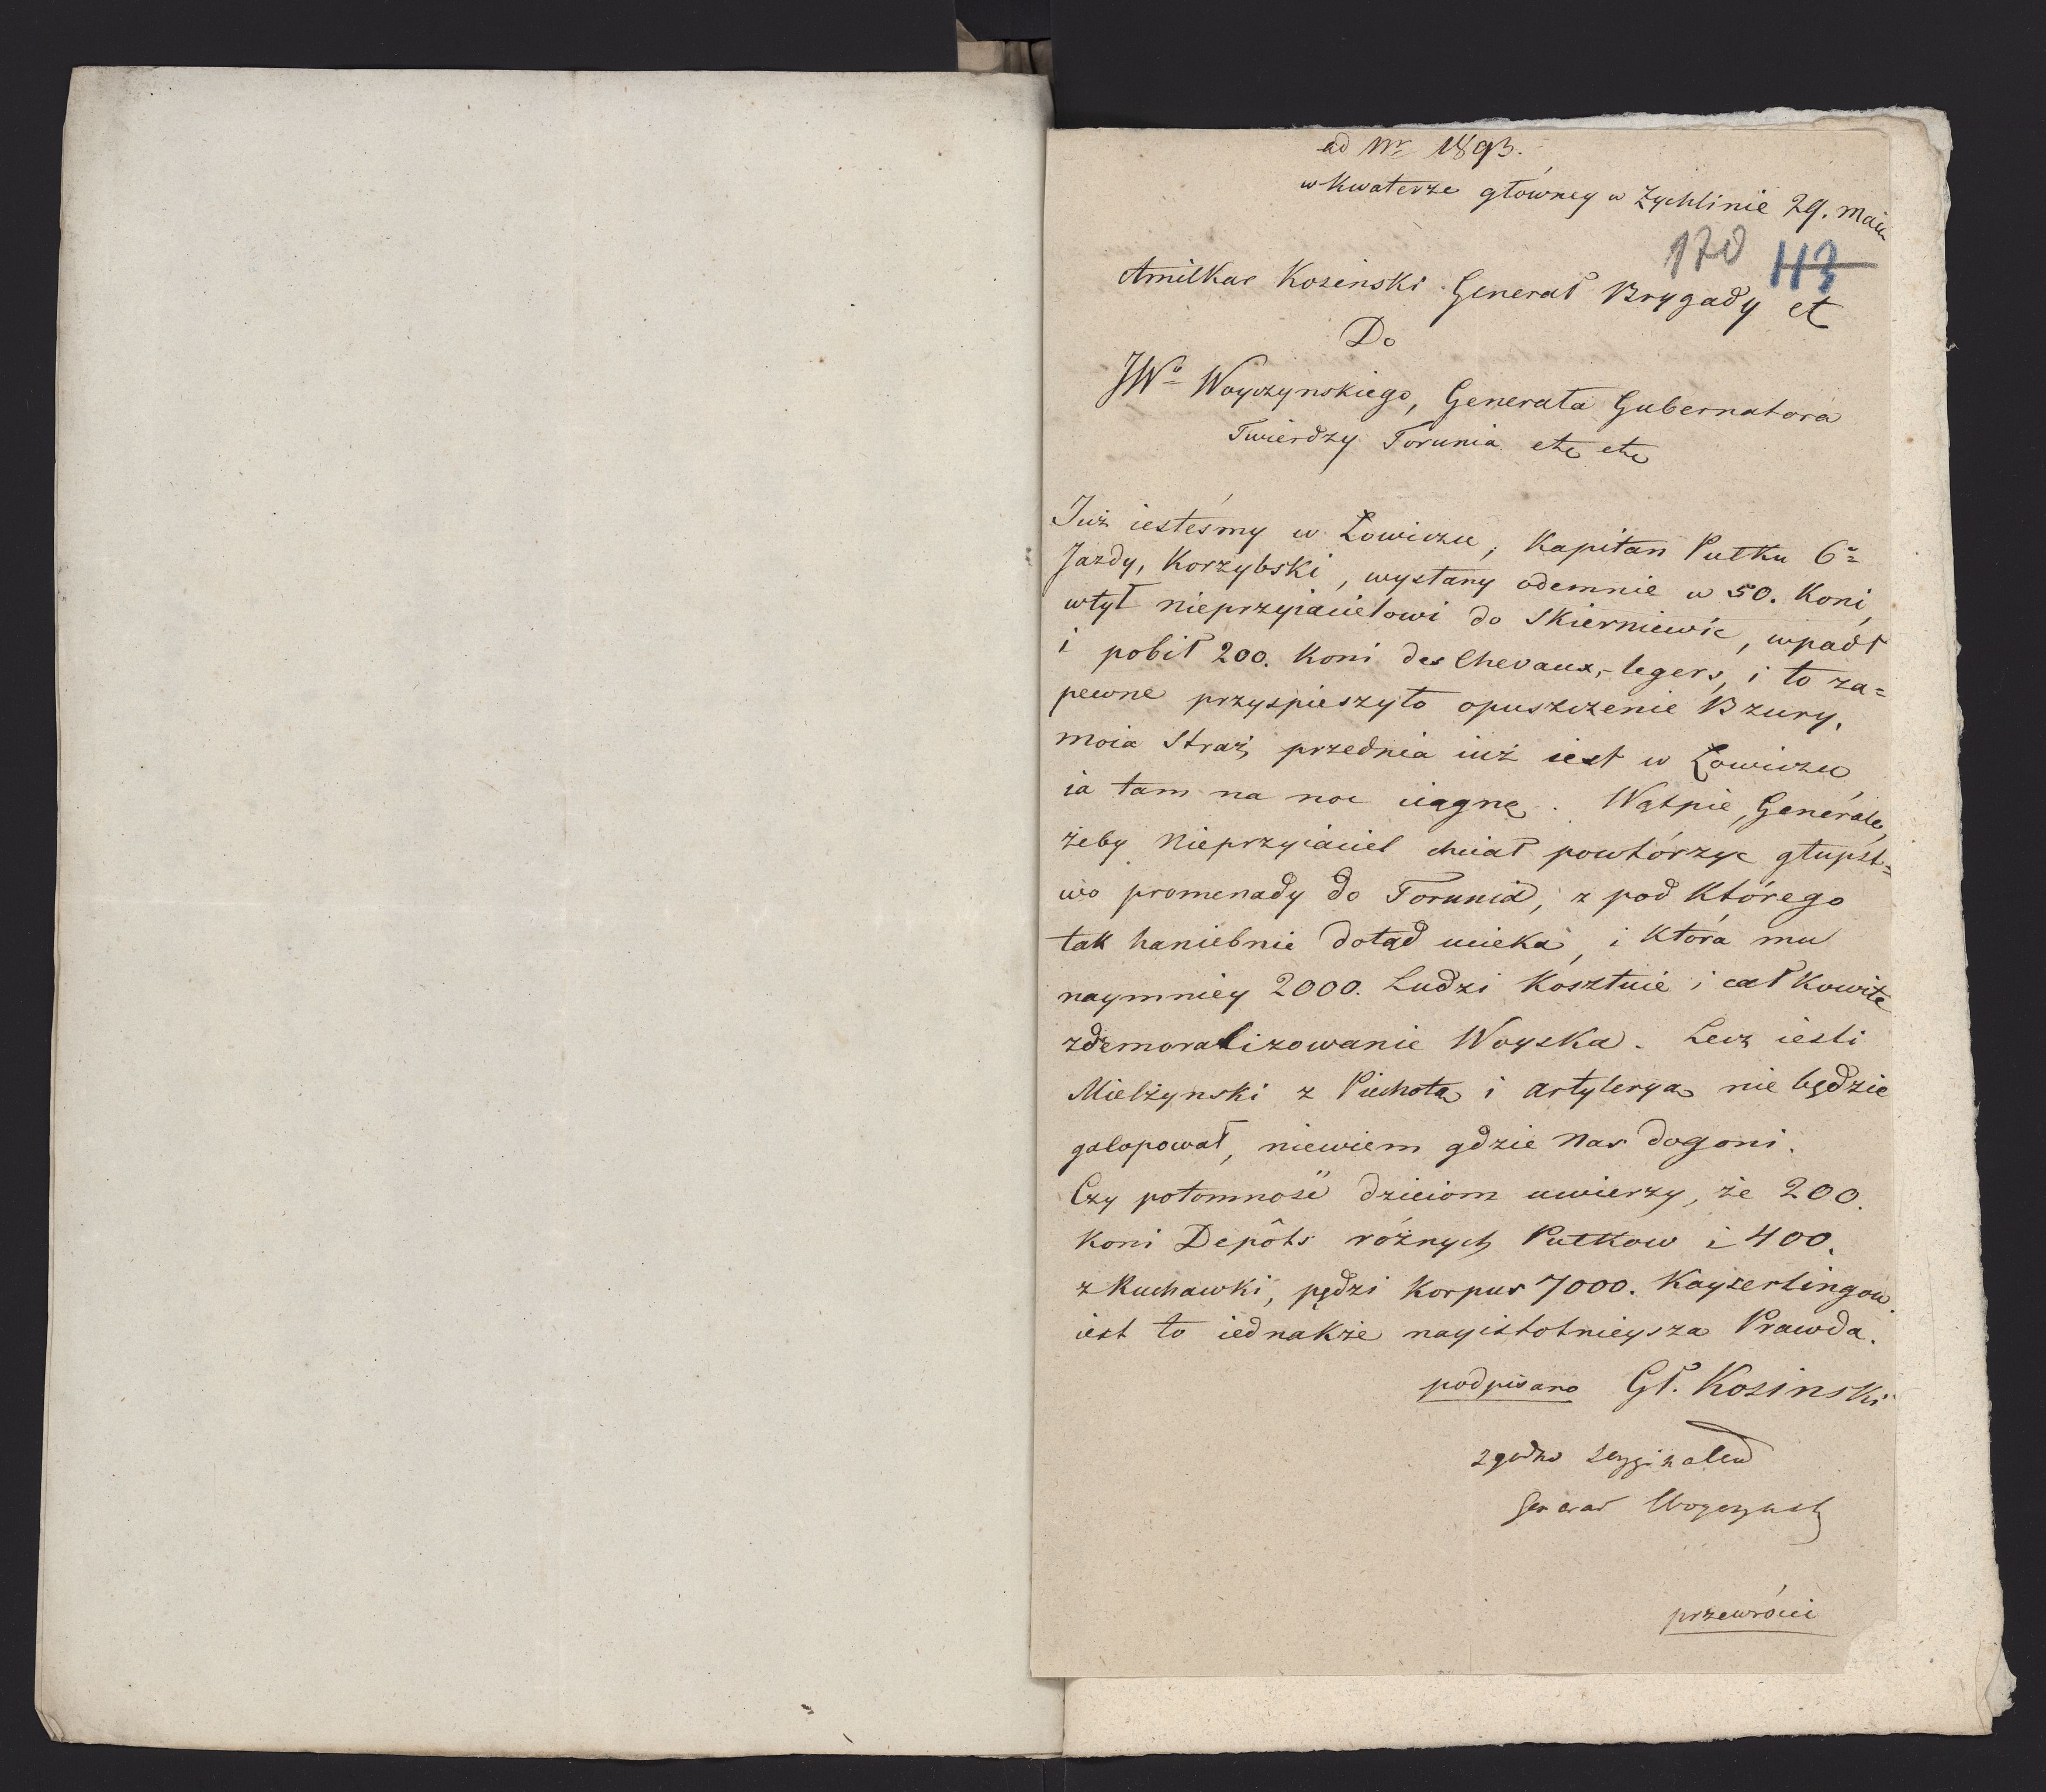 ad Nr 1893.
w Kwaterze główney w Zychlinie 29. Maia
178 113
Amilkar Kosinski Generał Brygady et
Do
JWo Woyczynskiego, Generała Gubernatora
Twierdzy Torunia etc etc
Już iesteśmy w Łowiczu, Kapitan Pułku 6o
Jazdy, Korzybski, wysłany odemnie w 50. Koni,
wtył nieprzyiacielowi do Skierniewic, wpadł
i pobił 200. Koni des Chevaux-legers, i to za=
pewne przyspieszyło opuszczenie Bzury.
moia Straż przednia iuż iest w Łowiczu
ia tam na noc ciągnę. Wątpię, Generale,
żeby Nieprzyiaciel chciał powtórzyc głupst=
wo promenady do Torunia, z pod Którego
tak haniebnie dotąd ucieka, i Która mu
naymniey 2000. Ludzi Kosztuie i całkowite
zdemoralizowanie Woyska. Lecz iesli
Mielżynski z Piechotą i artylerya nie będzie
galopował, niewiem gdzie Nas dogoni.
Czy potomność dzieciom uwierzy, że 200.
Koni Depôts różnych Pułkow i 400.
z Ruchawki, pędzi Korpus 7000. Kayzerlingow
iest to iednakże nayistotnieysza Prawda.
podpisano Gł. Kosinski
zgodno z oryginałem
Generał Woyczynski
przewróci